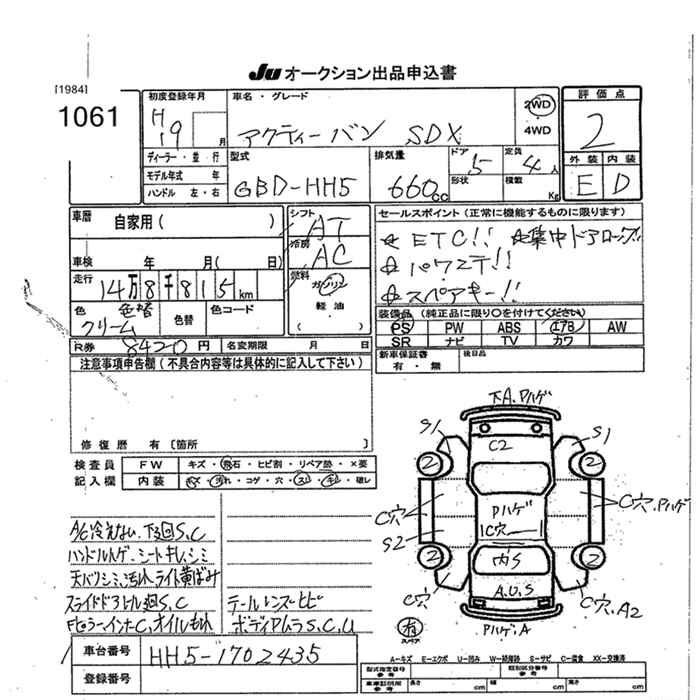 Ju オークション出品申込書
[1984]
1061
初度登録年月
H 19 月
車名・グレード
アクティー バン SDX
2WD
4WD
評価点
2
外装 内装
E D
ディーラー・並行
モデル年式 年
ハンドル 左・右
型式
GBD-HH5
排気量
660cc
ドア 5
形状
定員 4人
積載 Kg
車歴
自家用( )
車検 年 月( 日)
走行 14万8千815km
色 クリーム 色替
色替
色コード
シフト AT
冷房 AC
燃料 ガソリン
軽油
セールスポイント(正常に機能するものに限ります)
☆ETC!! ☆集中ドアロック!!
☆パワステ!!
☆スペアキー!!
装備品(純正品に限り○を付けてください)
PS PW ABS エアB AW
SR ナビ TV カワ
R券 8420円
名変期限 月 日
新車保証書
有・無
後日品
注意事項申告欄(不具合内容等は具体的に記入して下さい)
修復歴 有〔箇所 〕
検査員
記入欄
FW キズ・飛石・ヒビ割・リペア跡・×要
内装 キズ・汚れ・コゲ・穴・スレ・キレ・破レ
A/C冷えない.下3回S,C
ハンドルハゲ、シートキレ,シミ
天バリシミ,汚れ ライト黄ばみ
スライドドアトル廻S,C
FピラーインナC,オイルもれ
テールレンズヒビ
ボディPムラS,C,U
下A,Pハゲ
S1 C2 S1
2 2
C穴 Pハゲ C穴,Pハゲ
S2 1C穴
2 内S 2
C穴 A,U,S C穴,A2
有
スペア
Pハゲ,A
A-キズ E-エクボ U-凹み W-補修跡 S-サビ C-腐食 XX-交換済
車台番号 HH5-1702435
登録番号
型式指定番号
※参考
類別区分番号
※参考
車庫証明用
※参考
長さ cm
幅 cm
高さ cm